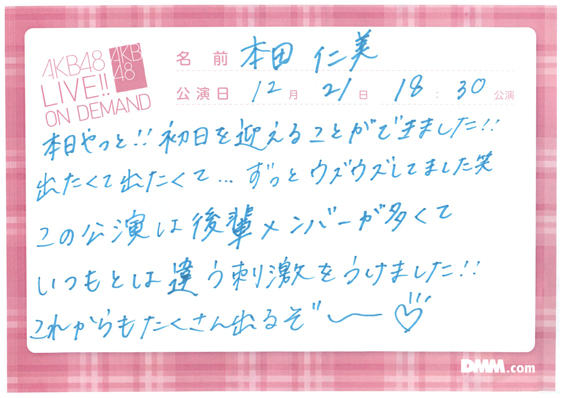 AKB48
LIVE!!
ON DEMAND
AKB
48
名前 本田 仁美
公演日 12月 21日 18:30 公演
本日やっと!! 初日を迎えることができました!!
出たくて出たくて… ずっとウズウズしてました笑
この公演は後輩メンバーが多くて
いつもとは違う刺激をうけました!!
これからもたくさん出るぞ〜♡
DMM.com